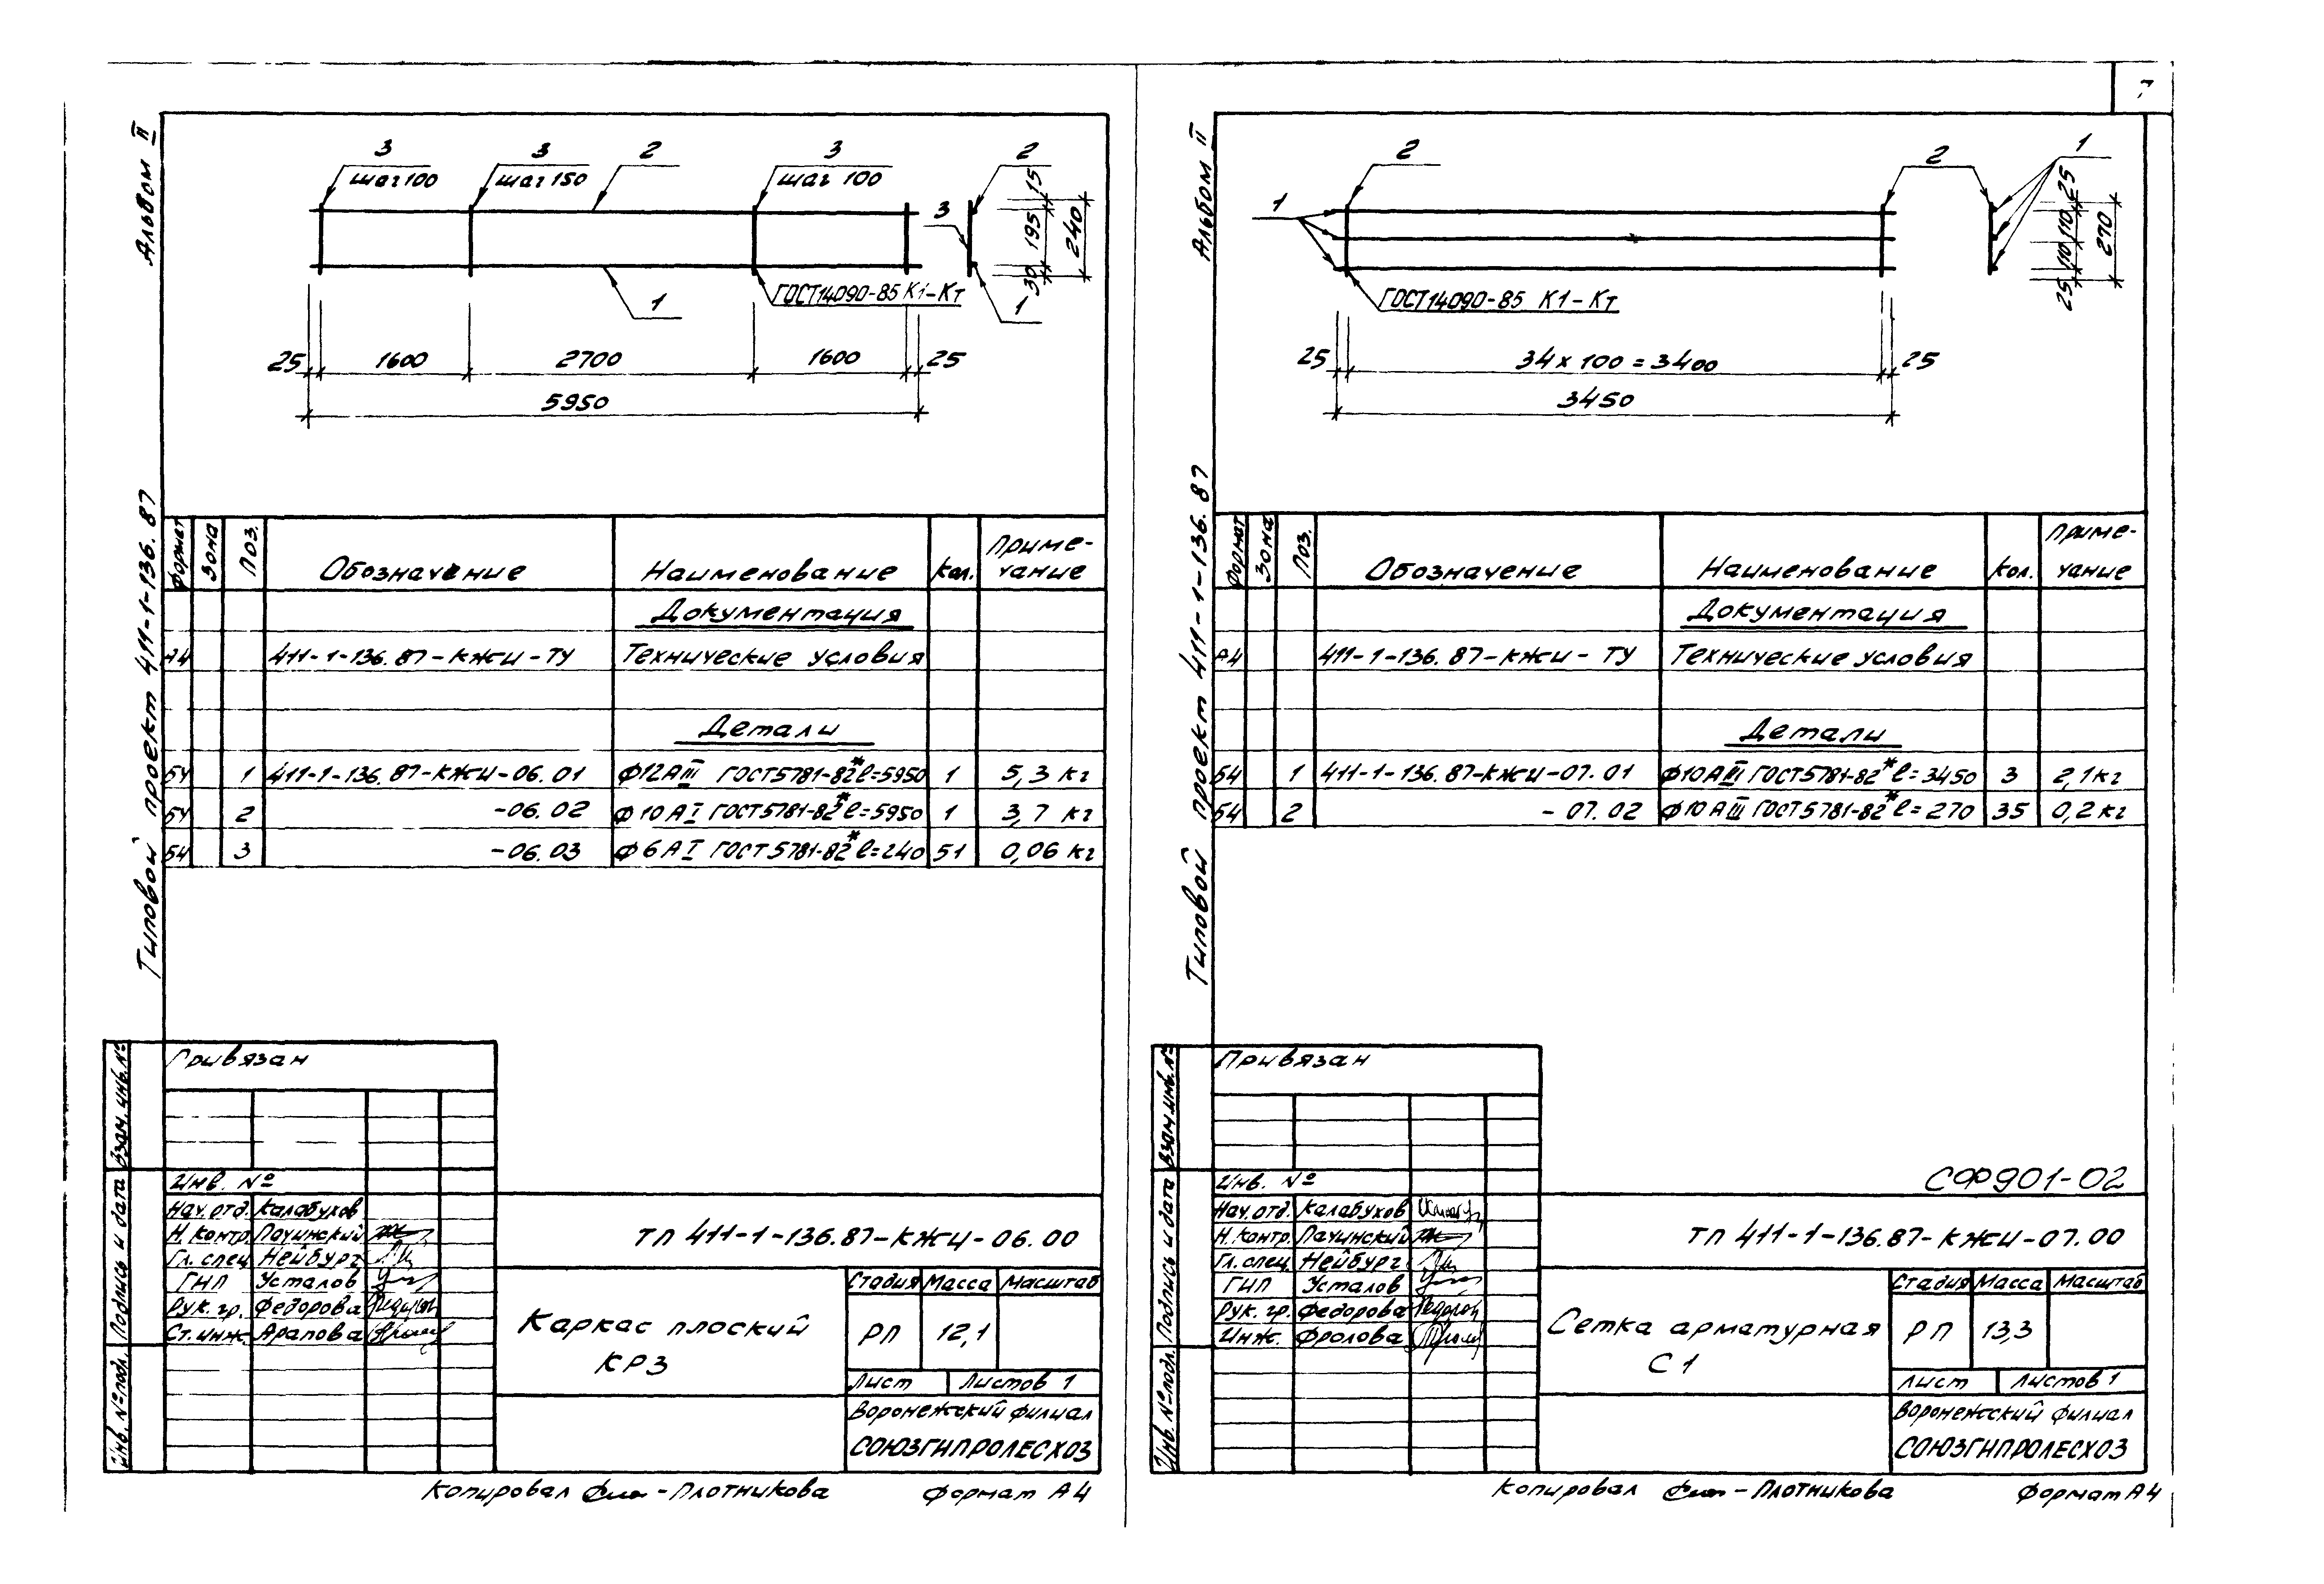 7
Альбом II
Типовой проект 411-1-136.87
3
шаг 100
3
шаг 150
2
3
шаг 100
2
3
1
1
15
195
30
240
ГОСТ 14090-85 К1-Кт
25
1600
2700
1600
25
5950
Формат Зона Поз. Обозначение Наименование Кол. Приме-
чание
Документация
А4 411-1-136.87-КЖИ-ТУ Технические условия
Детали
БЧ 1 411-1-136.87-КЖИ-06.01 Ф12АIII ГОСТ5781-82* ℓ=5950 1 5,3 кг
БЧ 2 -06.02 Ф10АI ГОСТ5781-82* ℓ=5950 1 3,7 кг
БЧ 3 -06.03 Ф6АI ГОСТ5781-82* ℓ=240 51 0,06 кг
Привязан
Инв. №
Нач.отд. Калабухов
Н.контр. Пачинский
Гл.спец. Нейбург
ГИП Усталов
Рук.гр. Федорова
Ст.инж. Арапова
Взам.инв.№
Подпись и дата
Инв.№подл.
ТП 411-1-136.87-КЖИ-06.00
Каркас плоский
КР3
Стадия Масса Масштаб
РП 12,1
Лист Листов 1
Воронежский филиал
СОЮЗГИПРОЛЕСХОЗ
Копировал -Плотникова Формат А4
Альбом II
Типовой проект 411-1-136.87
2
2
1
1
25
110
110
25
270
ГОСТ14090-85 К1-Кт
25
34х100=3400
25
3450
Формат Зона Поз. Обозначение Наименование Кол. Приме-
чание
Документация
А4 411-1-136.87-КЖИ-ТУ Технические условия
Детали
БЧ 1 411-1-136.87-КЖИ-07.01 Ф10АIII ГОСТ5781-82* ℓ=3450 3 2,1кг
БЧ 2 -07.02 Ф10АIII ГОСТ5781-82* ℓ=270 35 0,2кг
Привязан
Инв. №
Нач.отд. Калабухов
Н.контр. Пачинский
Гл.спец. Нейбург
ГИП Усталов
Рук.гр. Федорова
Инж. Фролова
Взам.инв.№
Подпись и дата
Инв.№подл.
СФ901-02
ТП 411-1-136.87-КЖИ-07.00
Сетка арматурная
С1
Стадия Масса Масштаб
РП 13,3
Лист Листов 1
Воронежский филиал
СОЮЗГИПРОЛЕСХОЗ
Копировал -Плотникова Формат А4